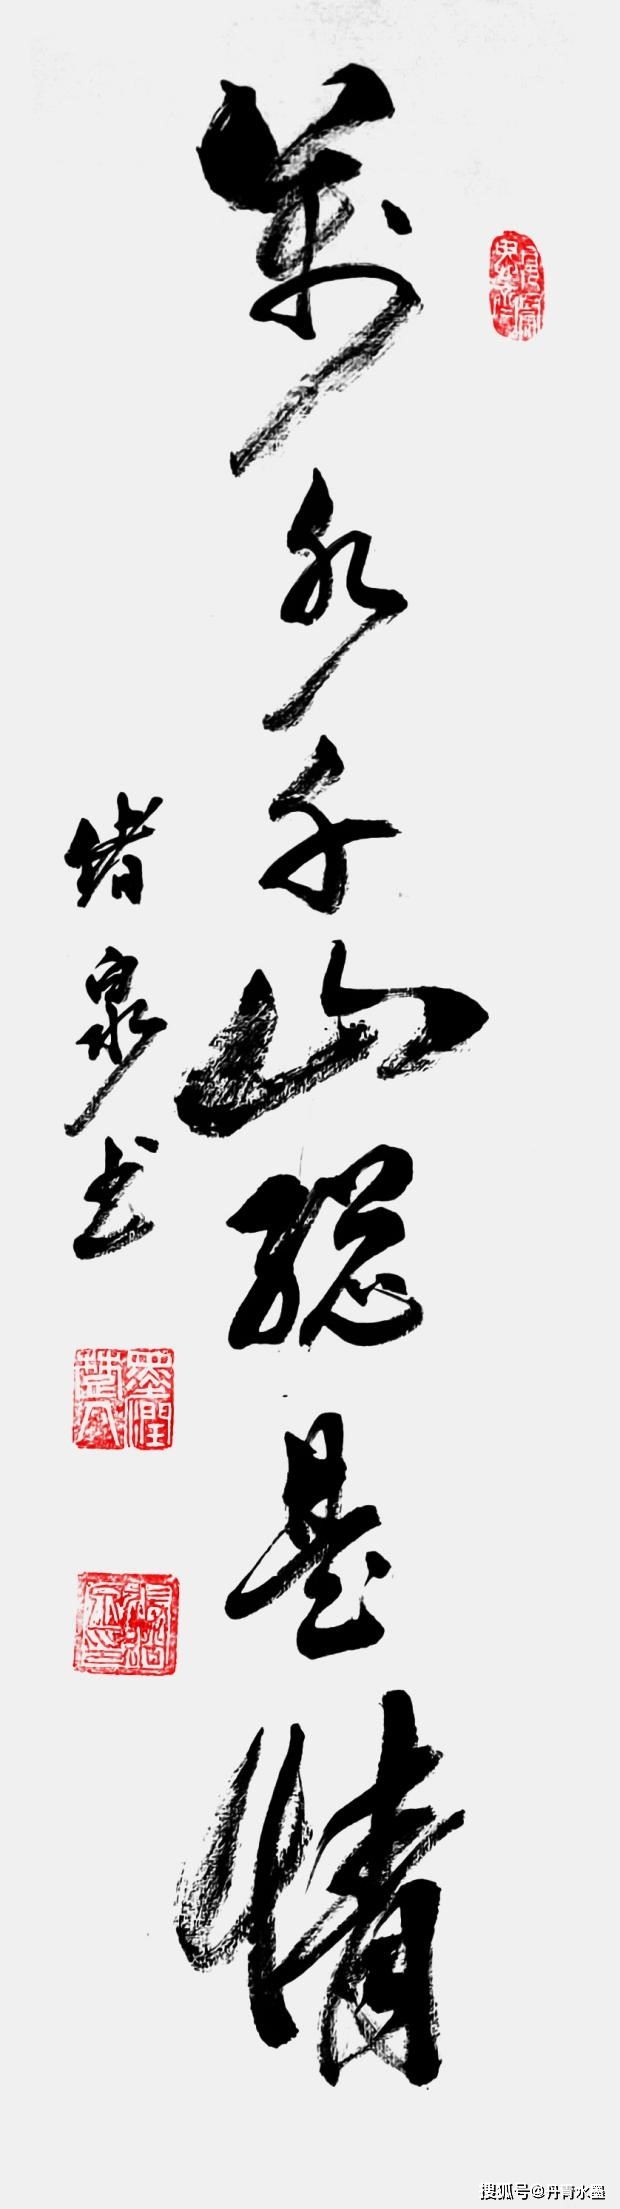 萬水千山總是情
绪泉书
搜狐号@丹青水墨